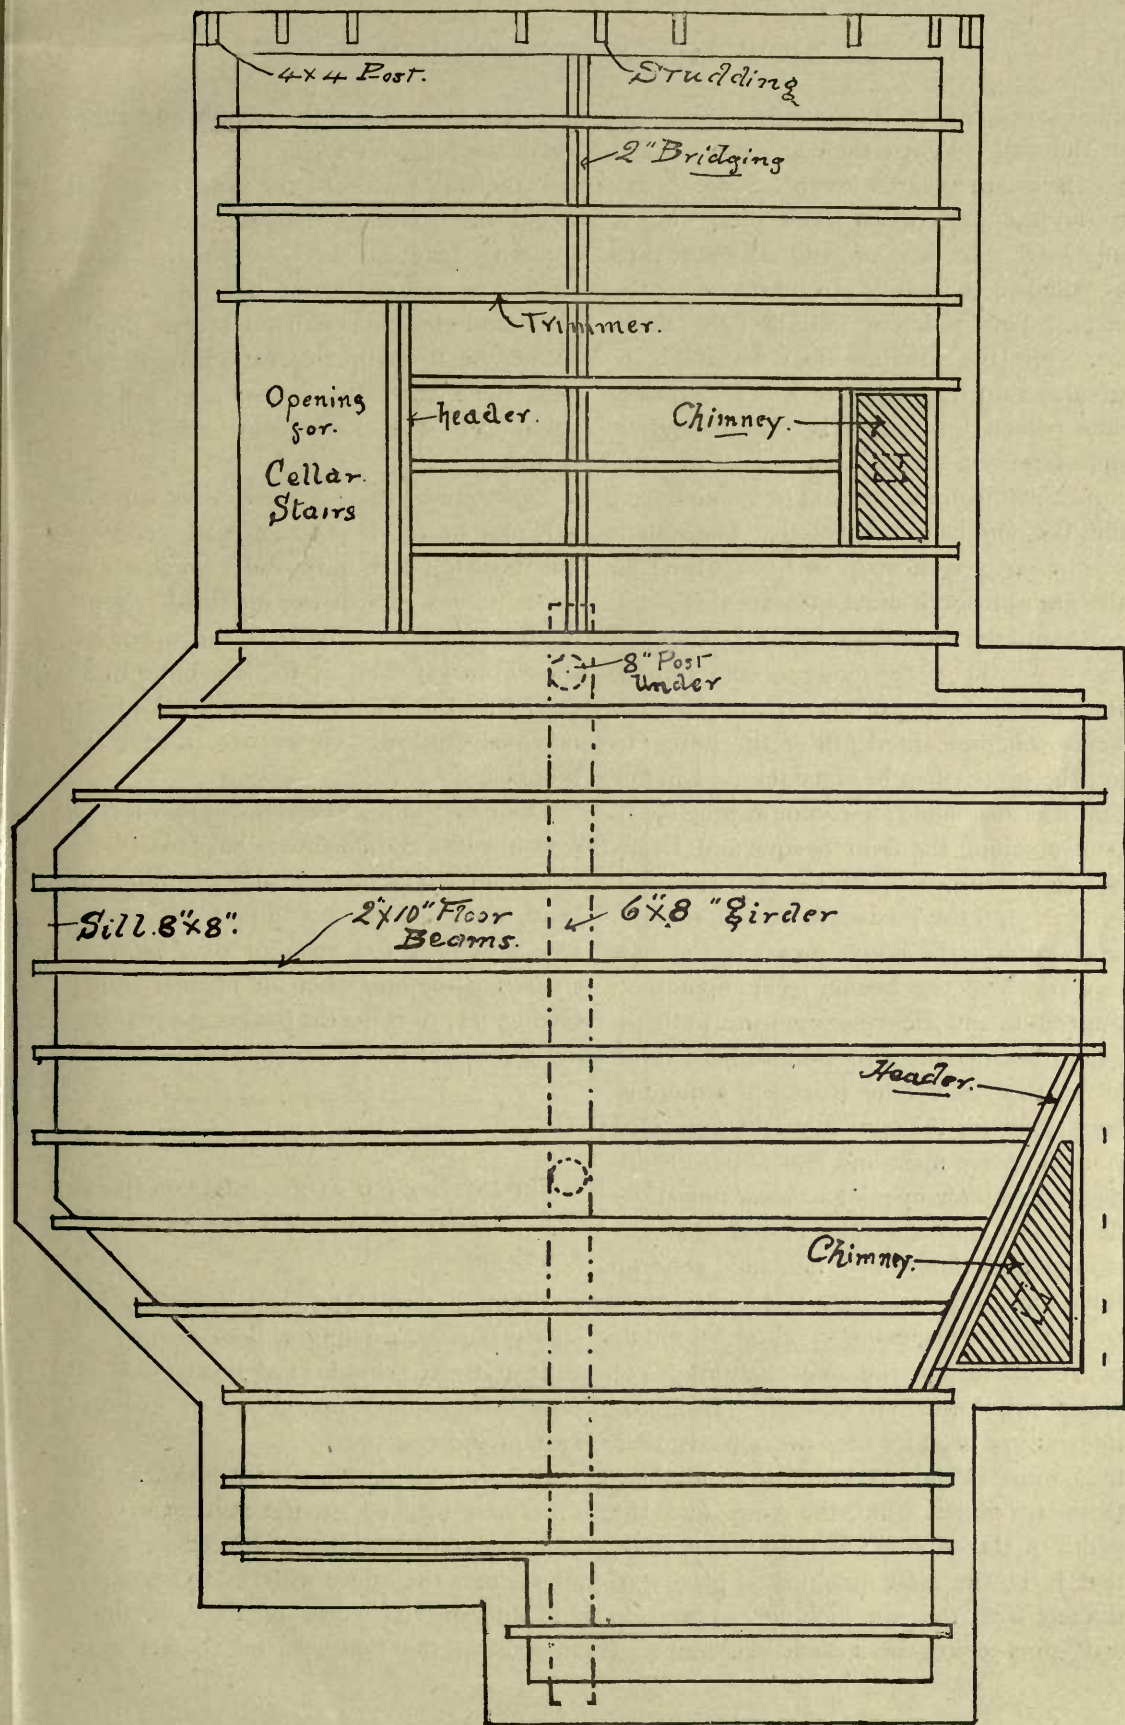 4×4 Post.
Studding
2" Bridging
Trimmer.
Opening
for.
Cellar.
Stairs
header.
Chimney.
8" Post
Under
Sill. 8"×8".
2"×10" Floor
Beams.
6"×8" Girder
Header.
Chimney.